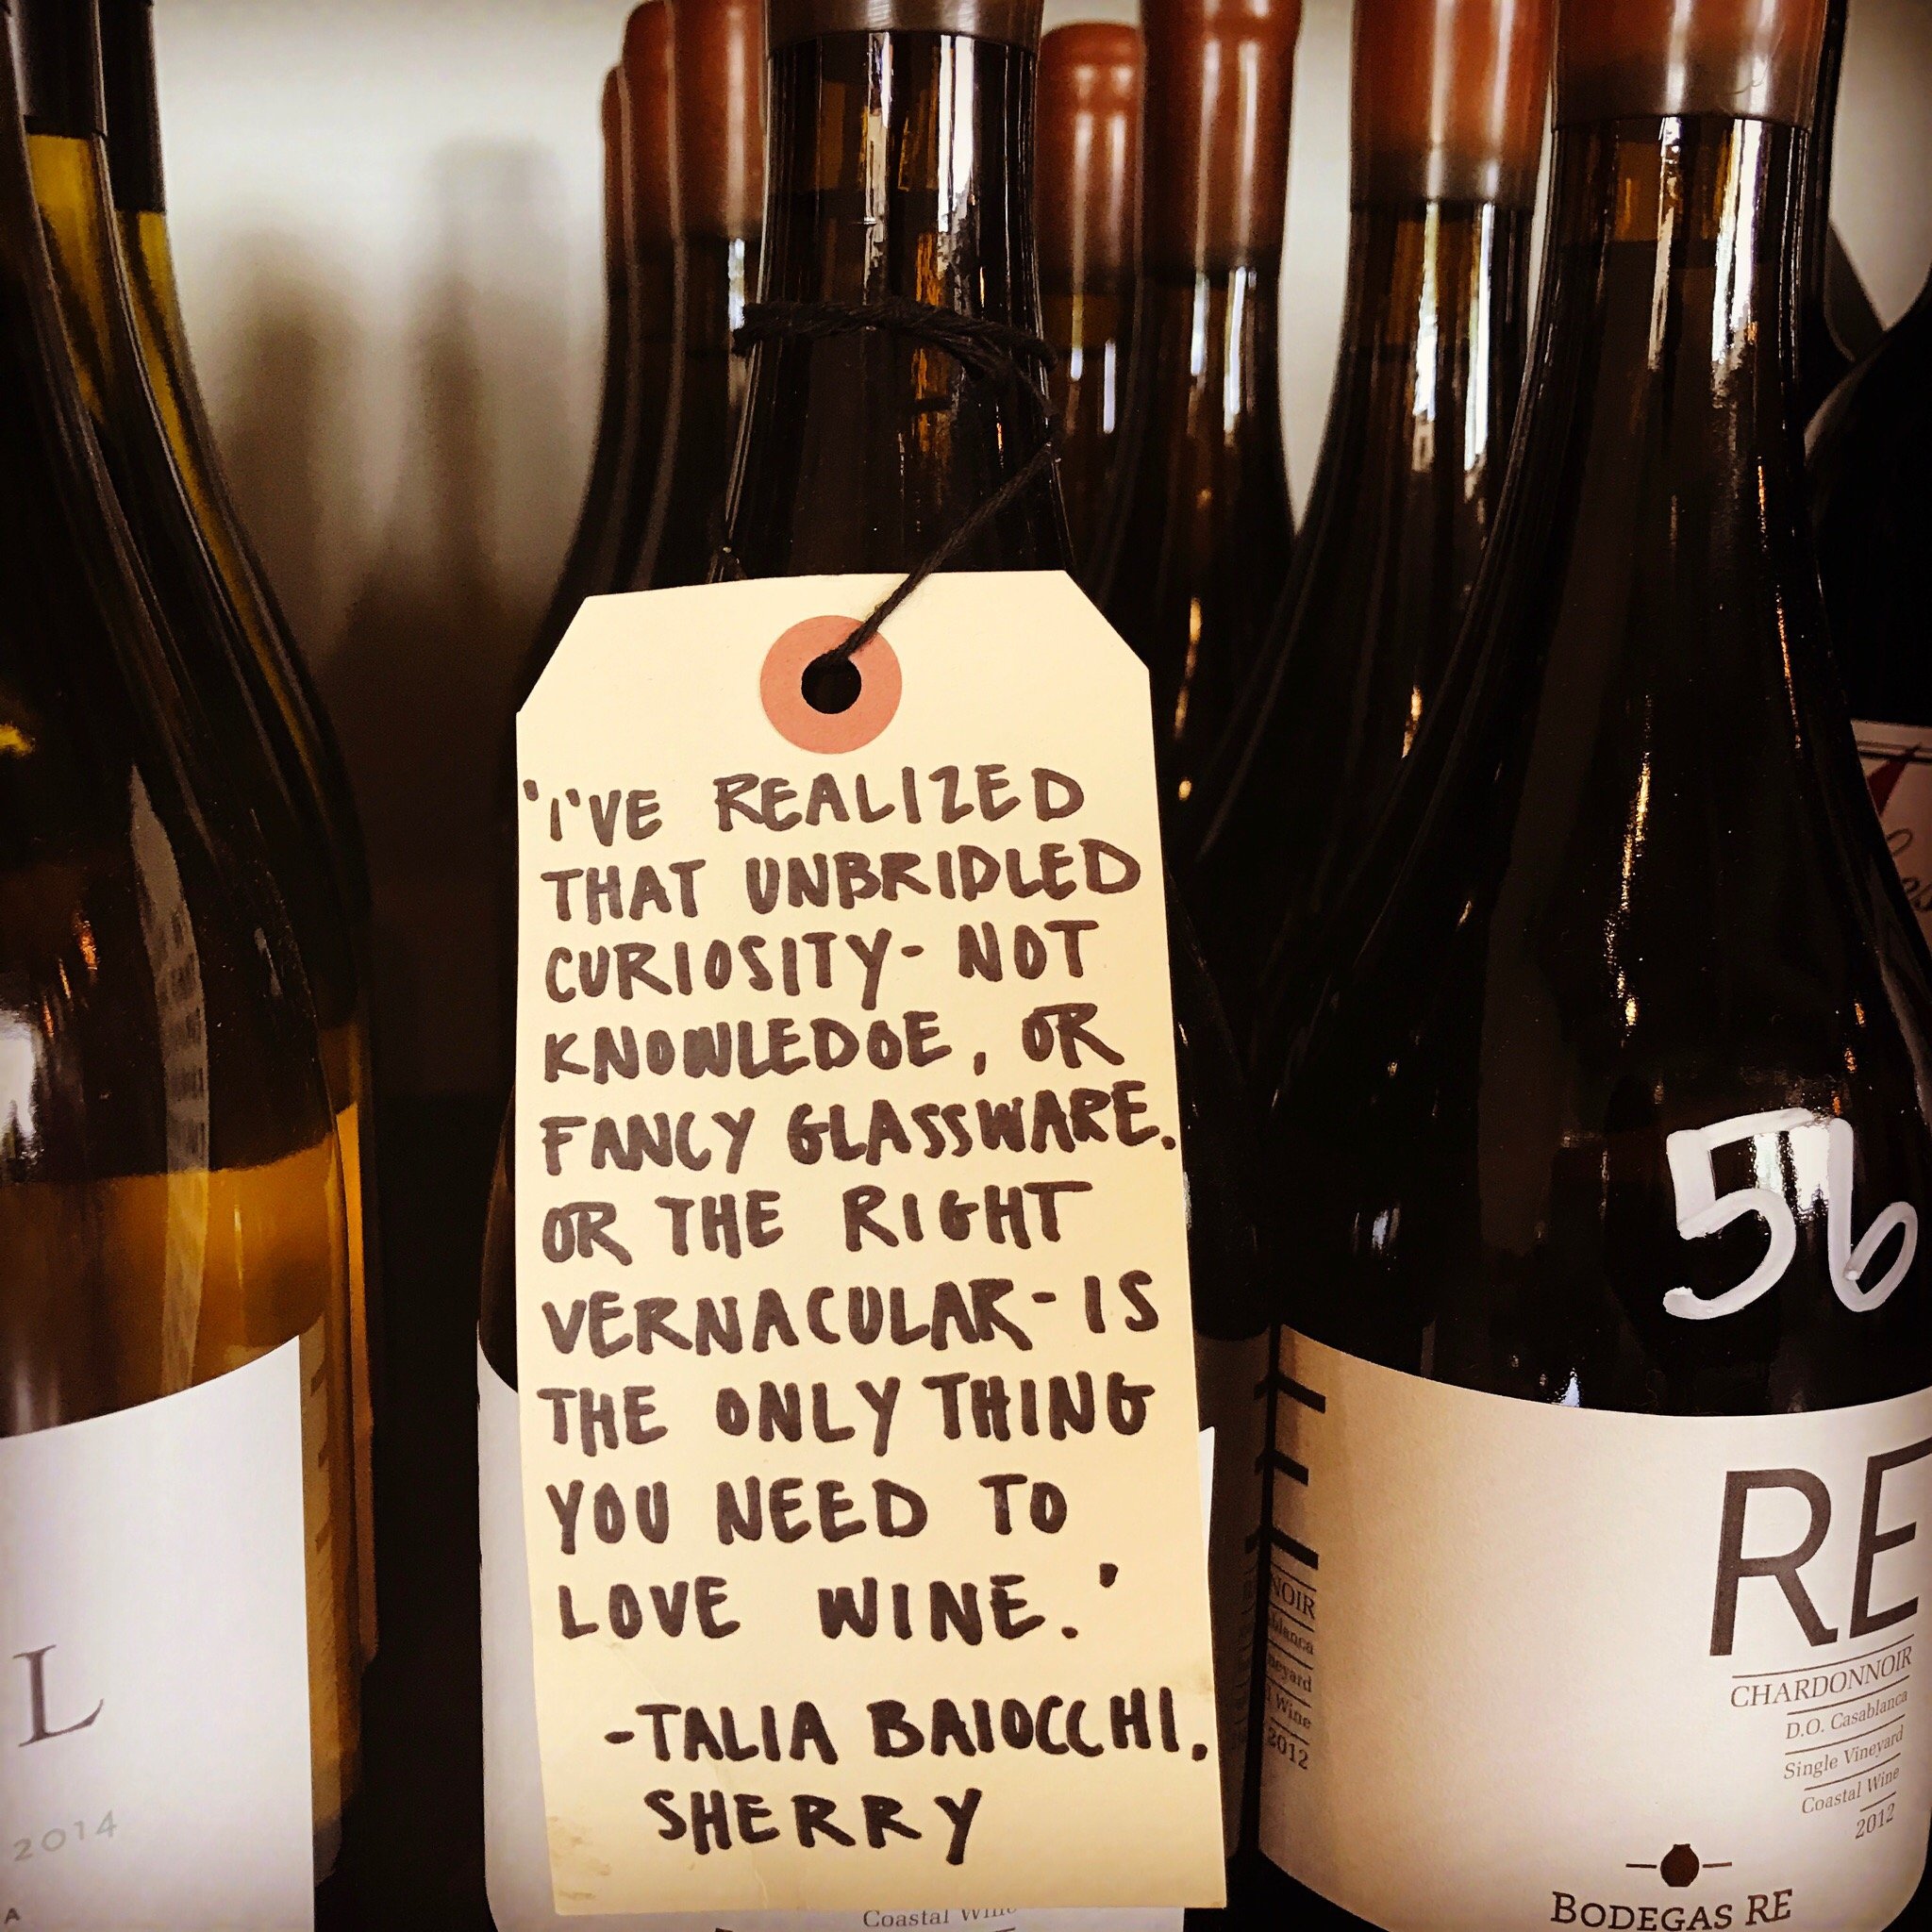 'I'VE REALIZED
THAT UNBRIDLED
CURIOSITY- NOT
KNOWLEDGE, OR
FANCY GLASSWARE.
OR THE RIGHT
VERNACULAR- IS
THE ONLY THING
YOU NEED TO
LOVE WINE.'
-TALIA BAIOCCHI,
SHERRY
Coastal
56
RE
CHARDONNOIR
D.O. Casablanca
Single Vineyard
Coastal Wine
2012
BODEGAS RE
NOIR
Wine
2012
L
2014
A